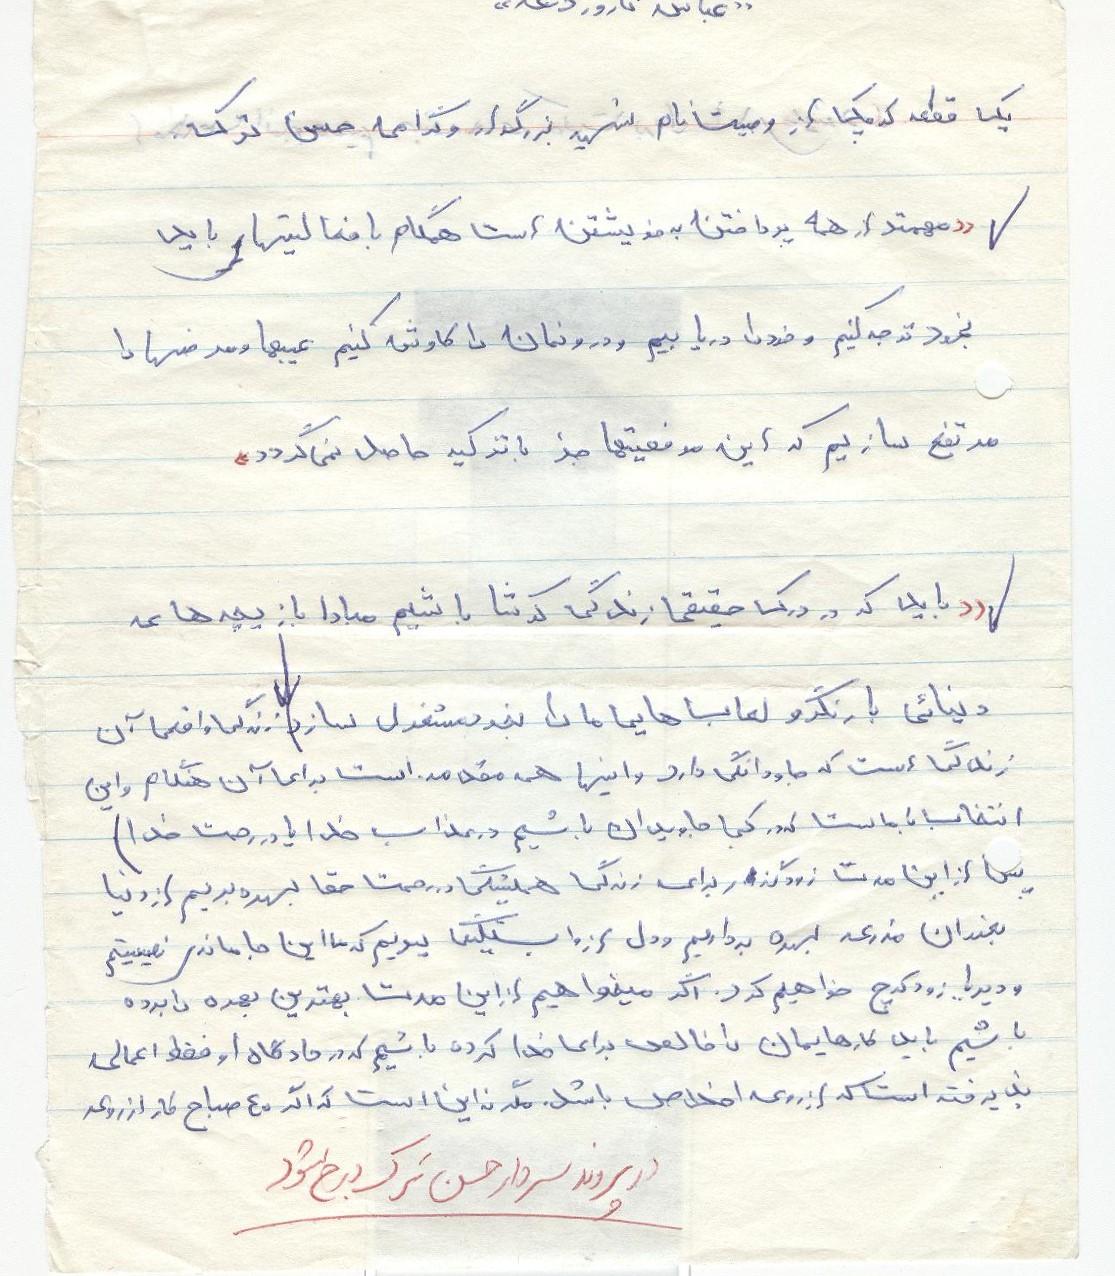 «عباس
یک قطعه کوچک از وصیتنامه شهید بزرگوار و گرامی حسن ترک
«مهمتر از همه پرداختن به خویشتن است همگام با فعالیتها باید
بخود توجه کنیم و خود را دریابیم و درونمان را کاوش کنیم عیبها و مرضها را
مرتفع سازیم که این موفقیتها جز با تزکیه حاصل نمی‌گردد»
«باید که در درک حقیقی زندگی کوشا باشیم مبادا بازیچه های
دنیائی با رنگ و لعاب هایی ما را بخود مشغول سازد زندگی واقعی آن
زندگی است که جاودانگی دارد و اینها همه مقدمه است برای آن هنگام و این
انتخاب با ماست که در کجا جاویدان باشیم در عذاب خدا یا در رحمت خدا)
پس از این مدت زودگذر برای زندگی همیشگی در رحمت حق بهره بریم از دنیا
بهره برداریم و دل از وابستگیها ببریم که ما اینجا ماندنی نیستیم
و دیر یا زود کوچ خواهیم کرد. اگر میخواهیم از این مدت بهترین بهره را برده
باشیم باید کارهایمان را خالص برای خدا کرده باشیم که در دادگاه او فقط اعمالی
پذیرفته است که از روی اخلاص باشد. مگر نه این است که اگر ۴۰ صباح کار از روی
در پرونده سردار حسن ترک درج شود